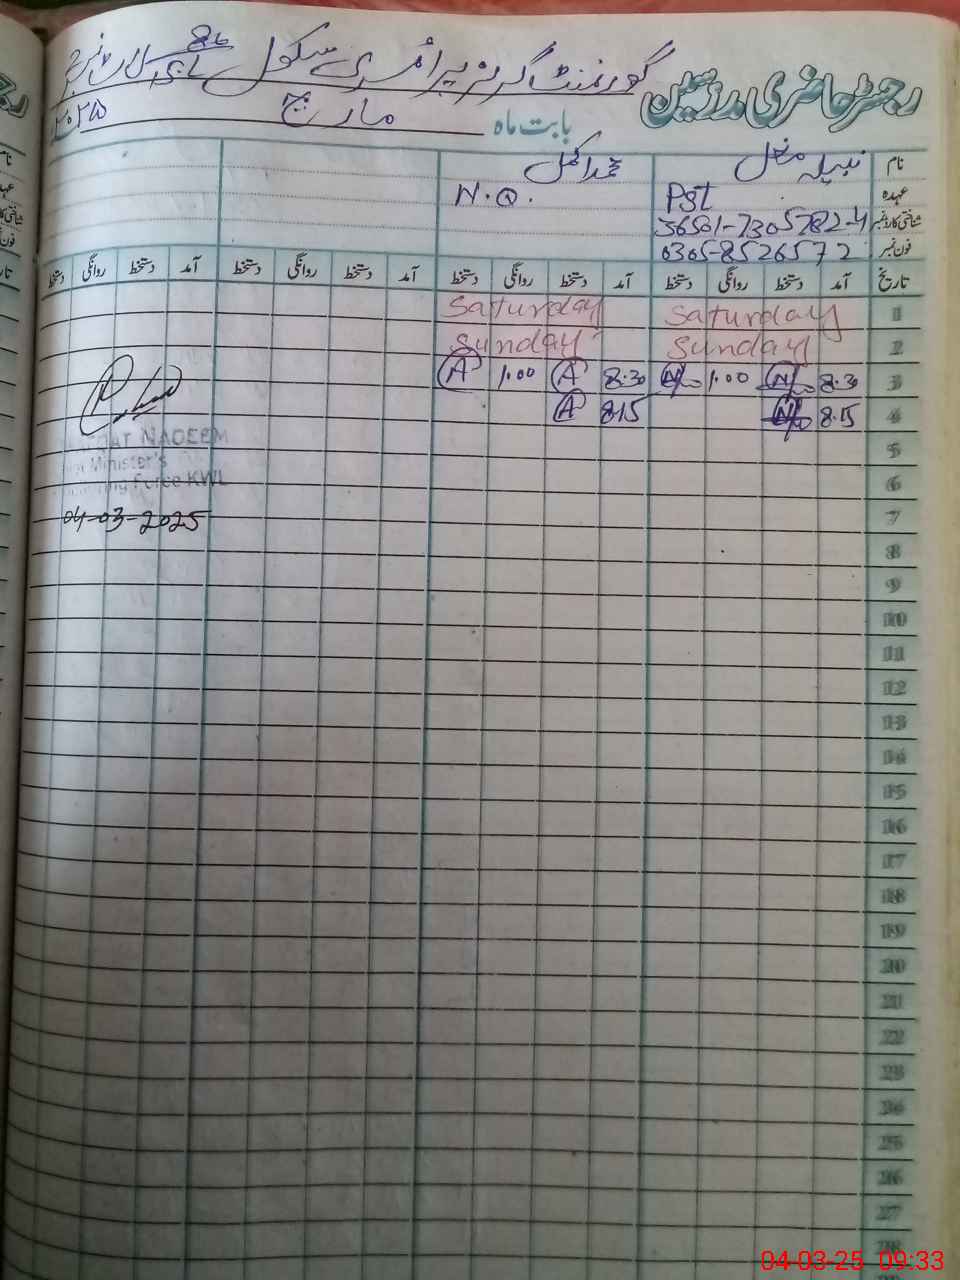 رجسٹر حاضری مدرسین گورنمنٹ گرلز پرائمری سکول
بابت ماہ مارچ ۲۰۲۵
نام نبیلہ مغل محمد اکمل
عہدہ Pst N.Q.
شناختی کارڈ نمبر 36501-7305782-4
فون نمبر 0305-8526572
تاریخ آمد دستخط روانگی دستخط آمد دستخط روانگی دستخط آمد دستخط روانگی دستخط آمد دستخط روانگی دستخط
1 Saturday Saturday
2 Sunday Sunday
3 8:30 1:00 8:30 A 1:00 A
4 8:15 8:15 A
5
6
7
8
9
10
11
12
13
14
15
16
17
18
19
20
21
22
23
24
25
26
27
28
NADEEM
Minister's
Force KWL
04-03-2025
04-03-25 09:33